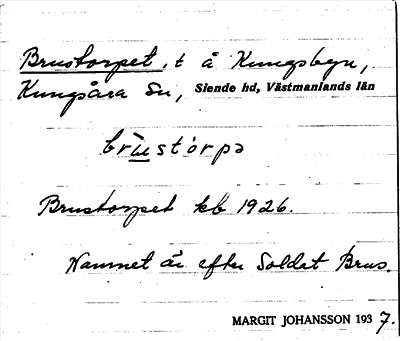 Brustorpet, t å Kungsbyn,
Kungsåra Sn, Siende hd, Västmanlands län
brùstórpə
Brustorpet kb 1926.
Namnet är efter Soldat Brus.
MARGIT JOHANSSON 1937.